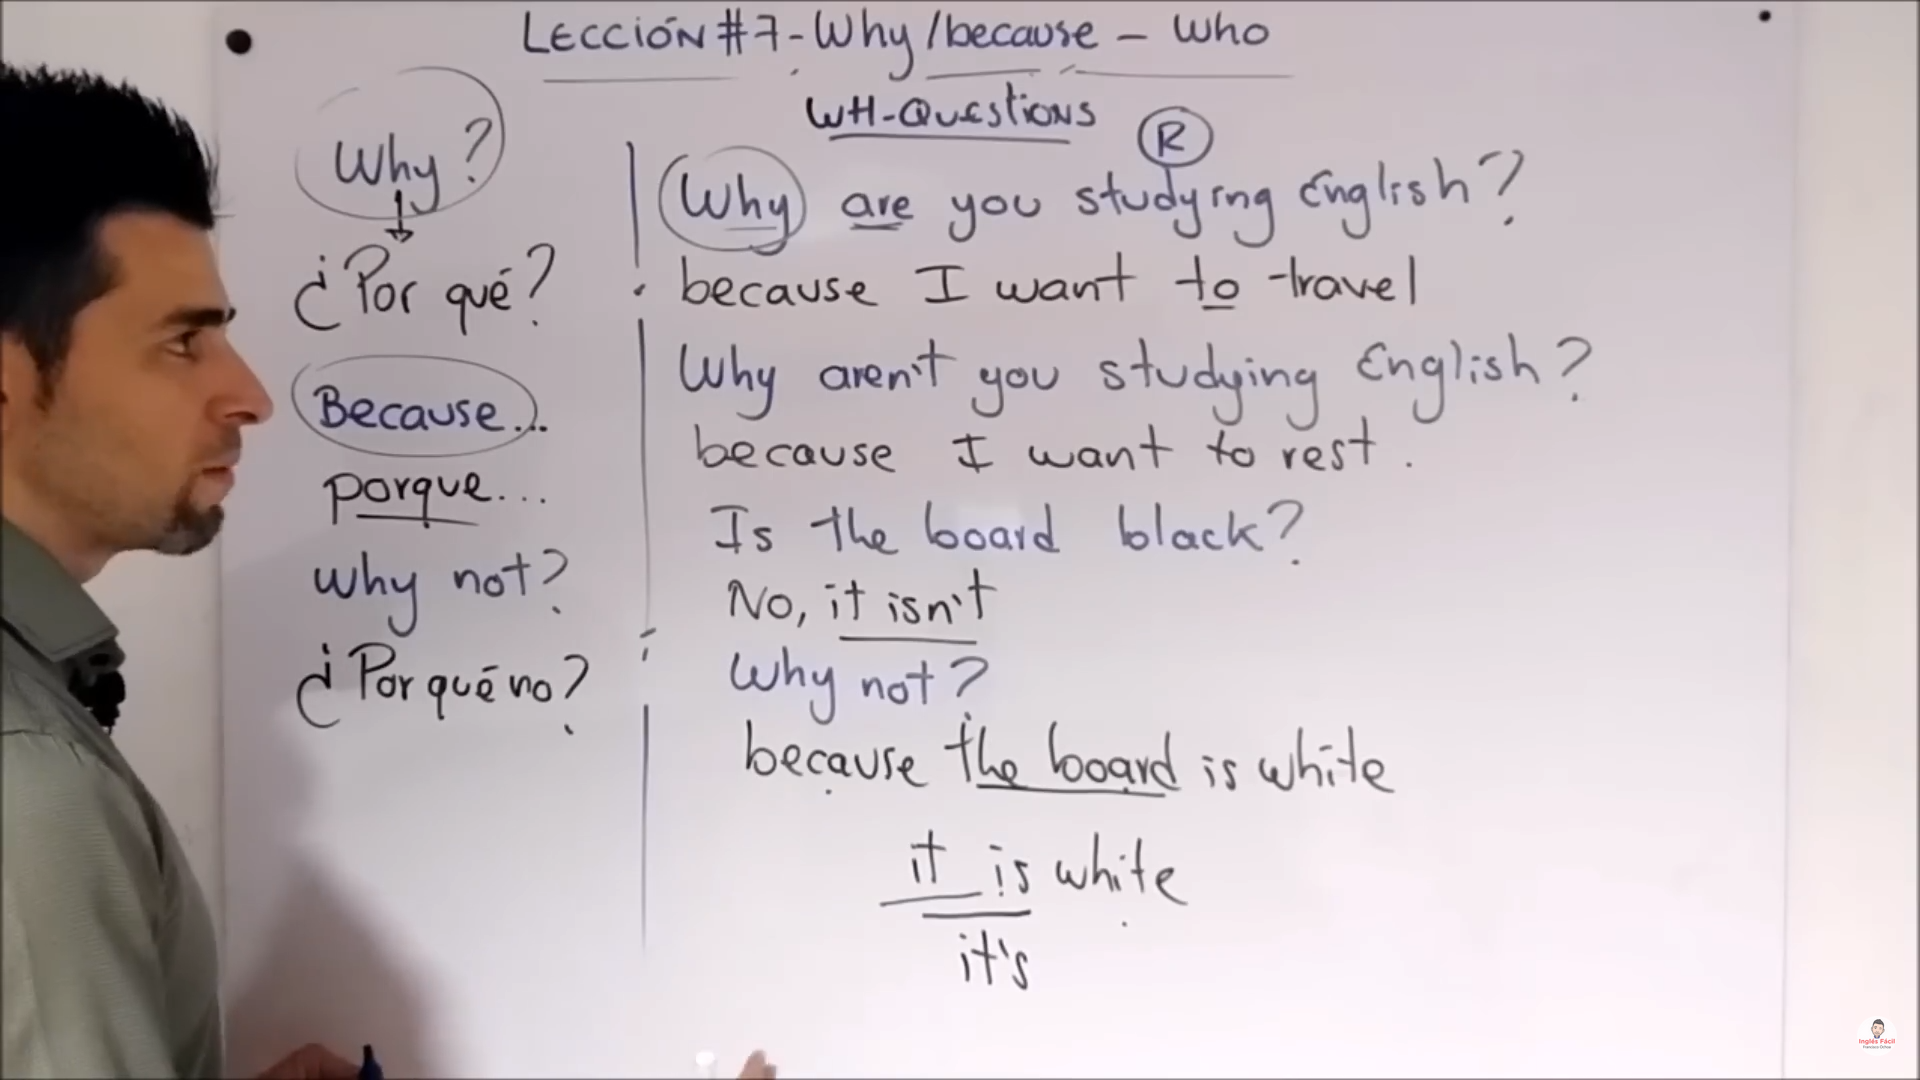 LECCIÓN #7 - Why / because - WHO
WH-QUESTIONS
Why?
¿Por qué?
Because...
porque...
why not?
¿Por qué no?
R
Why are you studying English?
because I want to travel
Why aren't you studying English?
because I want to rest.
Is the board black?
No, it isn't
Why not?
because the board is white
it is white
it's
Inglés Fácil